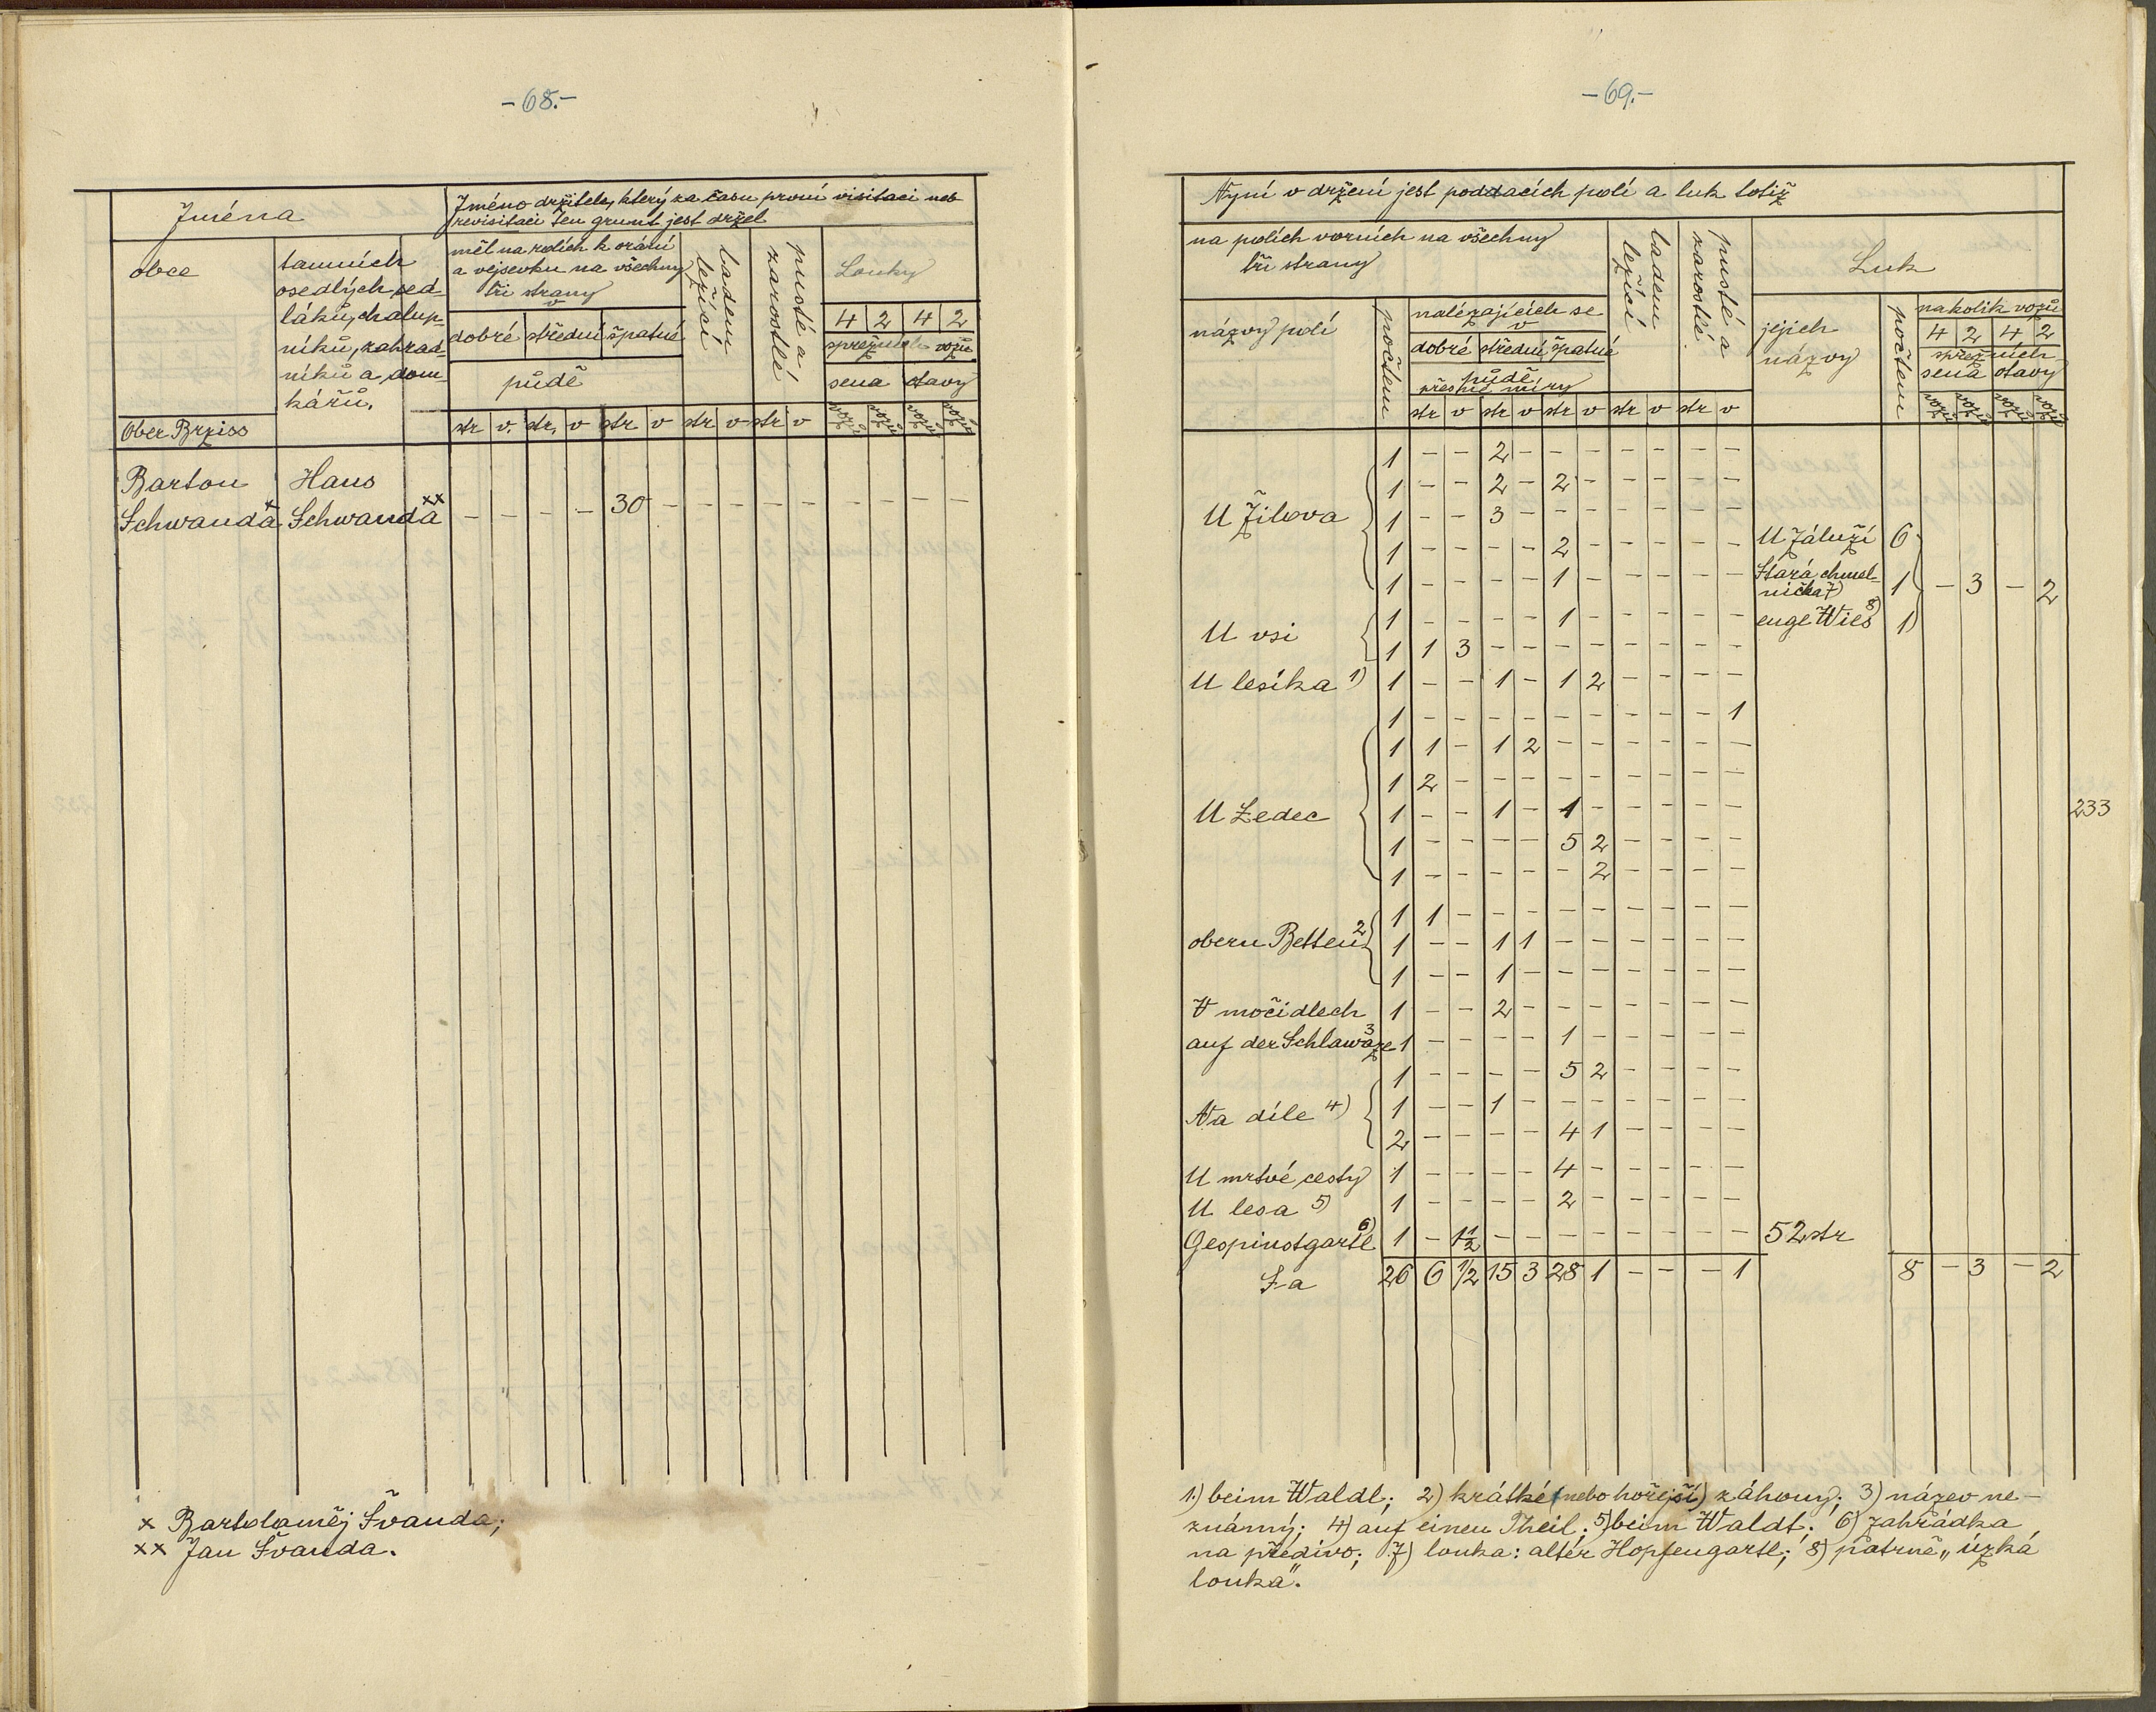 -68.-
Jména
Jméno držitele, který za času první visitaci neb
revisitaci ten grunt jest držel
obce
tamních
osedlých sed-
láků, chalup-
níků, zahrad-
níků a dom-
kářů.
měl na rolích k orání
a vejsevku na všechny
tři strany
v
dobré střední špatné
půdě
ladem
ležící
pusté a
zarostlé
Louky
4 2 4 2
spřežních vozů
sena otavy
Ober Brziss
str v. str. v str v str v str v vozů vozů vozů vozů
Barton Hans
Schwanda x Schwanda xx - - - - 30 - - - - - - - - -
x Bartoloměj Švanda;
xx Jan Švanda.
-69.-
Nyní v držení jest poddacích polí a luk totiž
na polích vorních na všechny
tři strany
ladem
ležící
pusté a
zarostlé
Luk
názvy polí
počtem
nalézajících se
v
dobré střední špatné
půdě
přesné míry
jejich
názvy
počtem
nakolik vozů
4 2 4 2
spřežních
sena otavy
str v str v str v str v str v vozů vozů vozů vozů
1 - - 2 - - - - - - -
1 - - 2 - 2 - - - - -
U Žilova 1 - - 3 - - - - - - -
1 - - - - 2 - - - - - U Záluží 6
1 - - - - 1 - - - - - Stará chmel-
nička 7) 1 - 3 - 2
1 - - - - 1 - - - - - enge Wies 8) 1
U vsi
1 1 3 - - - - - - - -
U lesíka 1) 1 - - 1 - 1 2 - - - -
1 - - - - - - - - - 1
1 1 - 1 2 - - - - - -
1 2 - - - - - - - - -
U Ledec 1 - - 1 - 1 - - - - -
233
1 - - - - 5 2 - - - -
1 - - - - - 2 - - - -
1 1 - - - - - - - - -
obern Betten 2) 1 - - 1 1 - - - - - -
1 - - 1 - - - - - - -
V močidlech 1 - - 2 - - - - - - -
auf der Schlawaze 3 1 - - - - 1 - - - - -
1 - - - - 5 2 - - - -
Na díle 4) 1 - - 1 - - - - - - -
2 - - - - 4 1 - - - -
U mrtvé cesty 1 - - - - 4 - - - - -
U lesa 5) 1 - - - - 2 - - - - -
Gespinstgartl 6) 1 - 1 1/2 - - - - - - - - 52 str
Sa 26 6 1/2 15 3 28 1 - - - 1 8 - 3 - 2
1.) beim Waldl; 2) krátké (nebo hořejší) záhony; 3) název ne-
známý; 4) auf einen Theil; 5) beim Waldt; 6) zahrádka
na předivo; 7) louka: alter Hopfengartl; 8) patrně „úzká
louka".